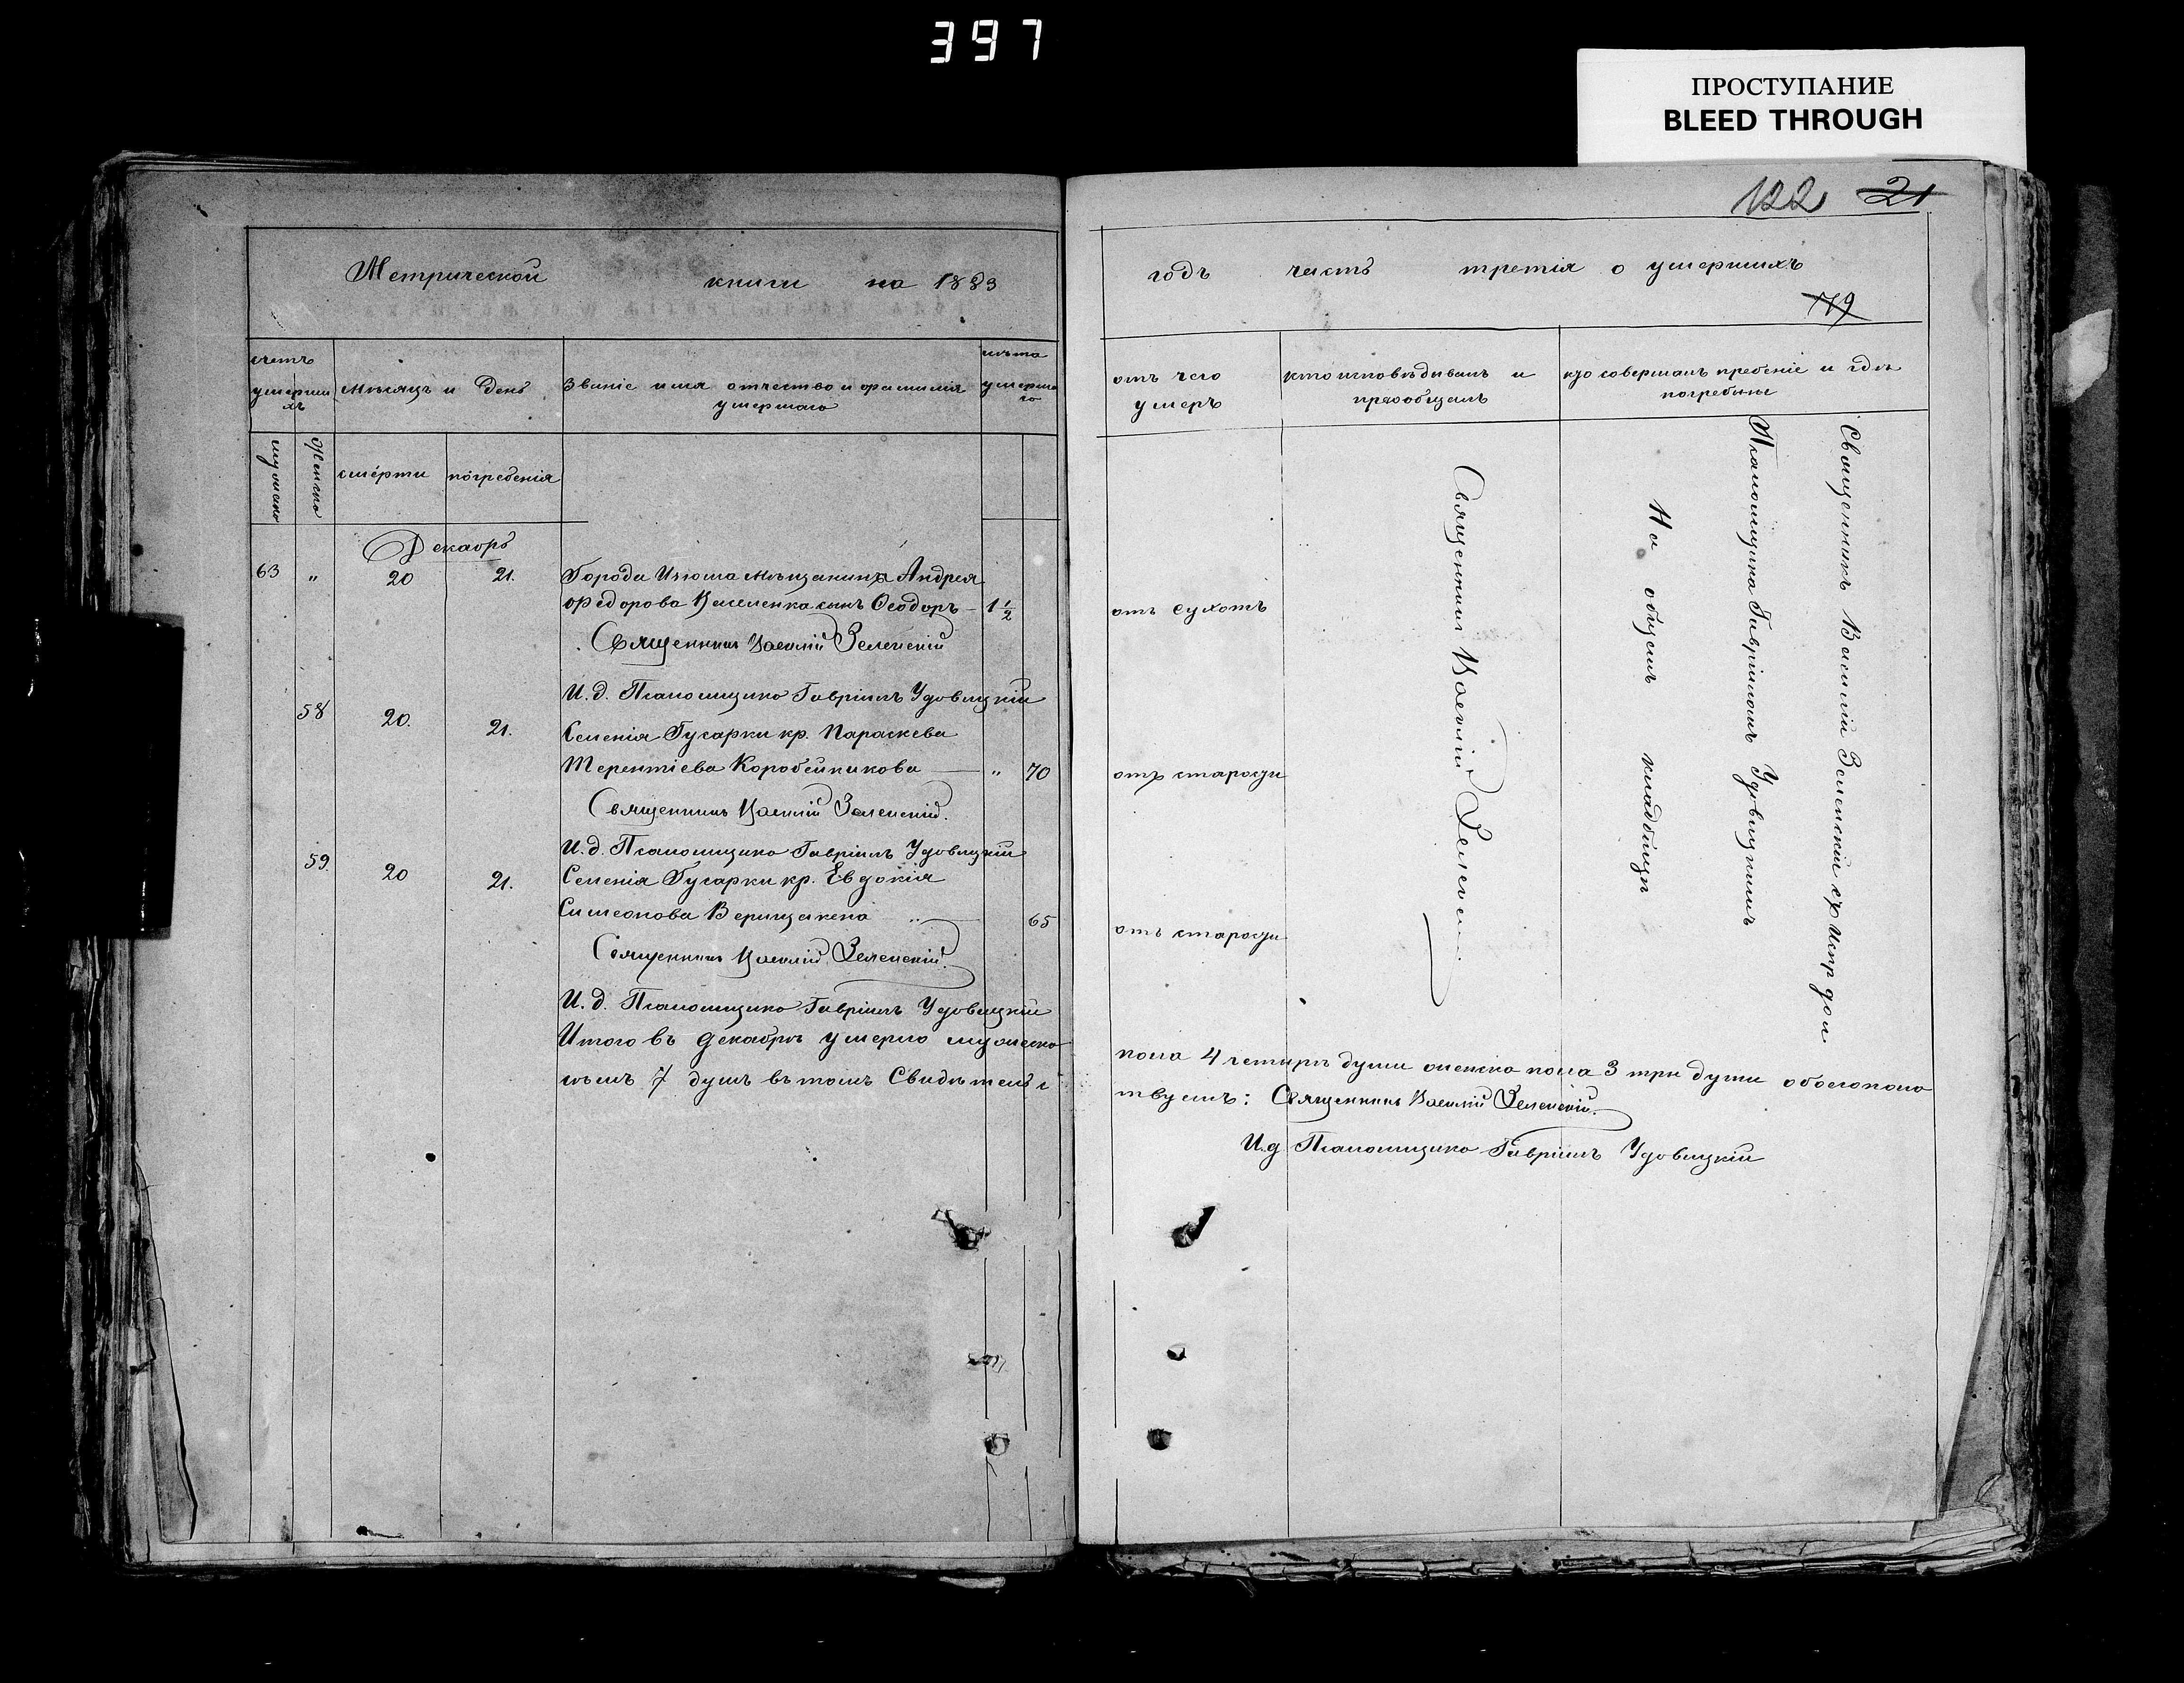 397
ПРОСТУПАНИЕ
BLEED THROUGH
122 21
Метрической книги на 1883
годъ часть третія о умершихъ
79
счетъ умершихъ
мѣсяцъ и день
Званіе имя отчество и фамилія умершаго
лѣта умершаго
отъ чего умеръ
кто исповѣдивалъ и пріобщалъ
кто совершалъ погребеніе и гдѣ погребены
мужеско
Женско
смерти
погребенія
Декабръ
63 „ 20 21. Города Изюма мѣщанина Андрея
Федорова Василенка сынъ Ѳеодоръ – 1 1/2
отъ сухотъ
Священникъ Василій Зеленскій
И. д. Псаломщика Гавріилъ Удовицкій
58 20. 21. Селенія Гусарки кр. Параскева
Терентіева Коробейникова — „ 70
отъ старости
Священникъ Василій Зеленскій.
И. д. Псаломщика Гавріилъ Удовицкій
59. 20 21. Селенія Гусарки кр. Евдокія
Симеонова 65
отъ старости
Священникъ Василій Зеленскій.
И. д. Псаломщика Гавріилъ Удовицкій
Священникъ Василій Зеленскій
На общемъ кладбищѣ
Псаломщика Гавріиломъ Удовицкимъ
Священникъ Василій Зеленскій съ
Итого въ декабрѣ умерло мужеска
пола 4 четырѣ души женска пола 3 три души обоегопола
7 душъ въ томъ Свидѣтельс
твуемъ: Священникъ Василій Зеленскій.
И.д Псаломщика Гавріилъ Удовицкій